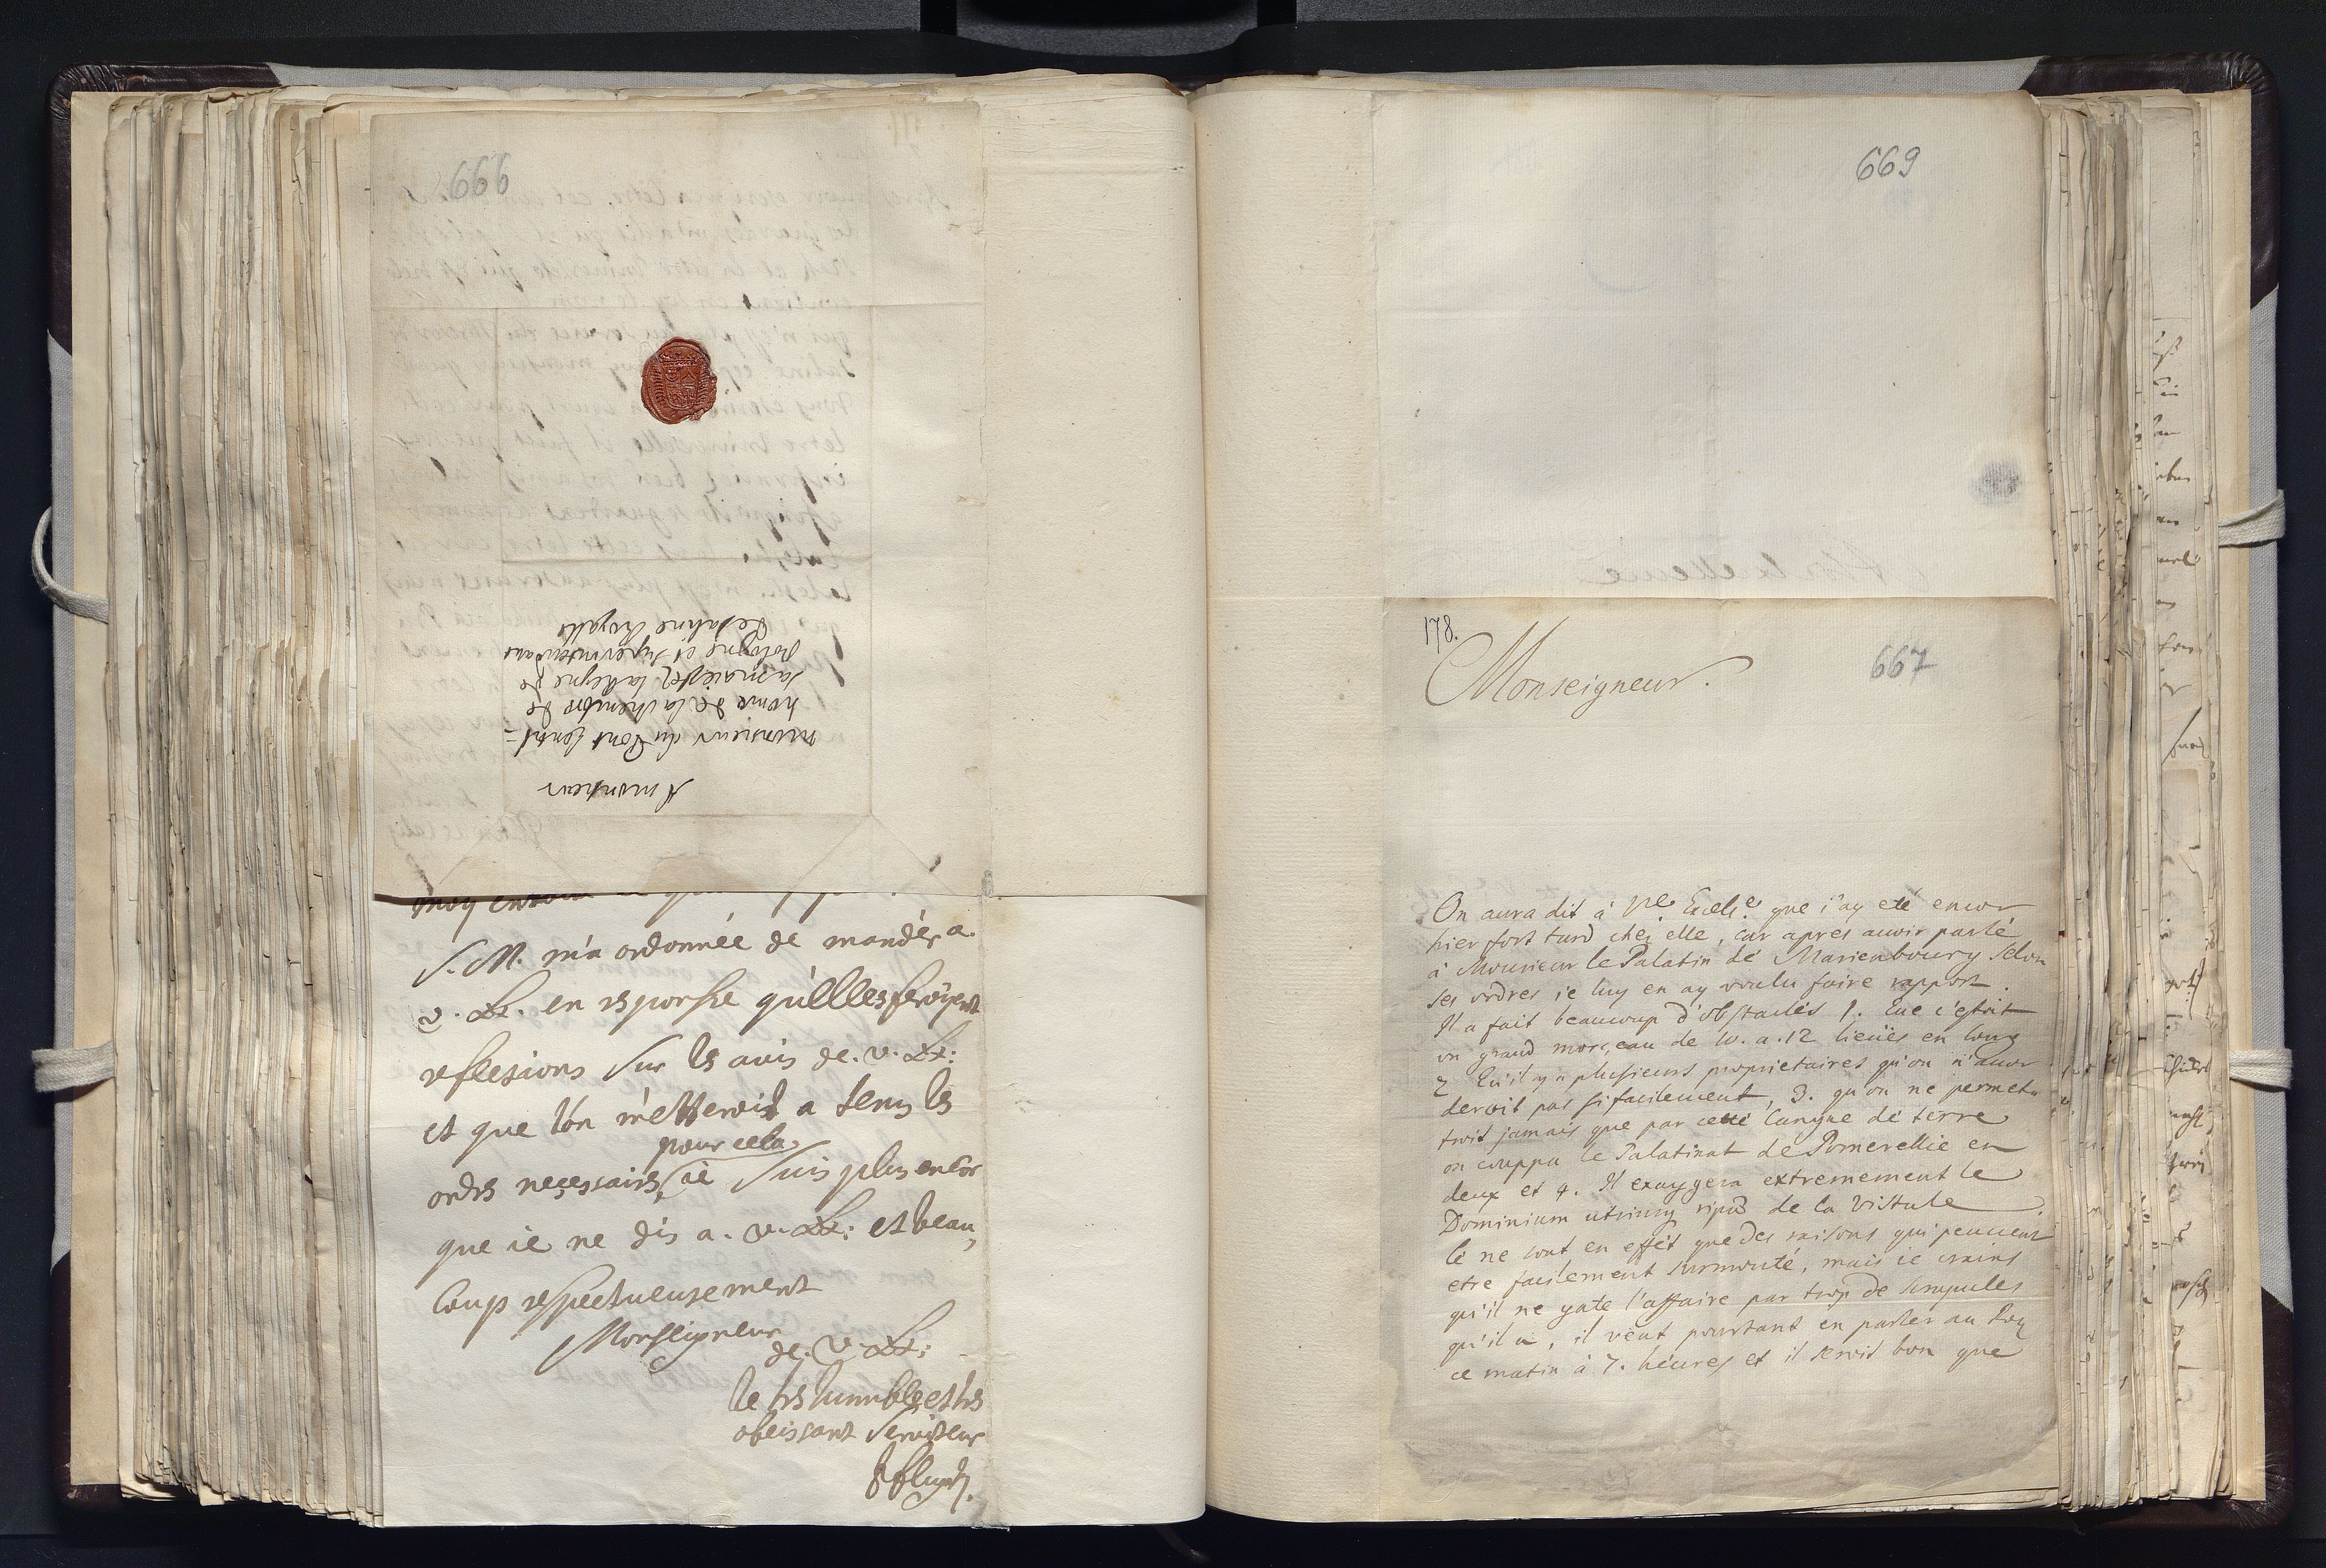 666
A monsieur
monsieur du Pont gentil-
home de la chembre de
sa maiestez la Reyne de
Pologne et superintendant
de saline Royalle
S. M. m'a ordonnée de mandér a
v. Ex. en responsse qu'Elle feroijent
reflexions sur ls avis de. v. Ex:
et que l'on metteroit a tems ls
pour cela
ordrs necessairs, ie suis plus encor
que ie ne dis a. v. Ex: et beau,
coup respectueusement
Monseigneur
de. v. Ex:
le trs humble et trs
obeissant serviteur
669
178.
667
Monseigneur.
On aura dit à Vre Excelce que j'ay eté encor
hier fort tard chez elle, car apres auoir parlé
à Monsieur le Palatin de Marienbourg selon
ses ordres ie luy en ay voulu faire rapport.
Il a fait beaucoup d'obstacles 1. Que c'estoit
un grand morceau de 10. a. 12 lieües en long
2 Qu'il y a plusieurs proprietaires qu'on n'accor
deroit pas si facilement, 3. qu'on ne permet
troit jamais que par cette langue de terre
on couppa le Palatinat de Pomerellie en
deux et 4. Il exaggera extremement le
Dominium utriusq ripæ de la Vistule.
Ce ne sont en effét que des raisons qui peuuent
etre facilement surmonté, mais ie crains
qu'il ne gate l'affaire par trop de scrupules
qu'il a, il veut pourtant en parler au Roy
ce matin à 7. heures et il seroit bon que